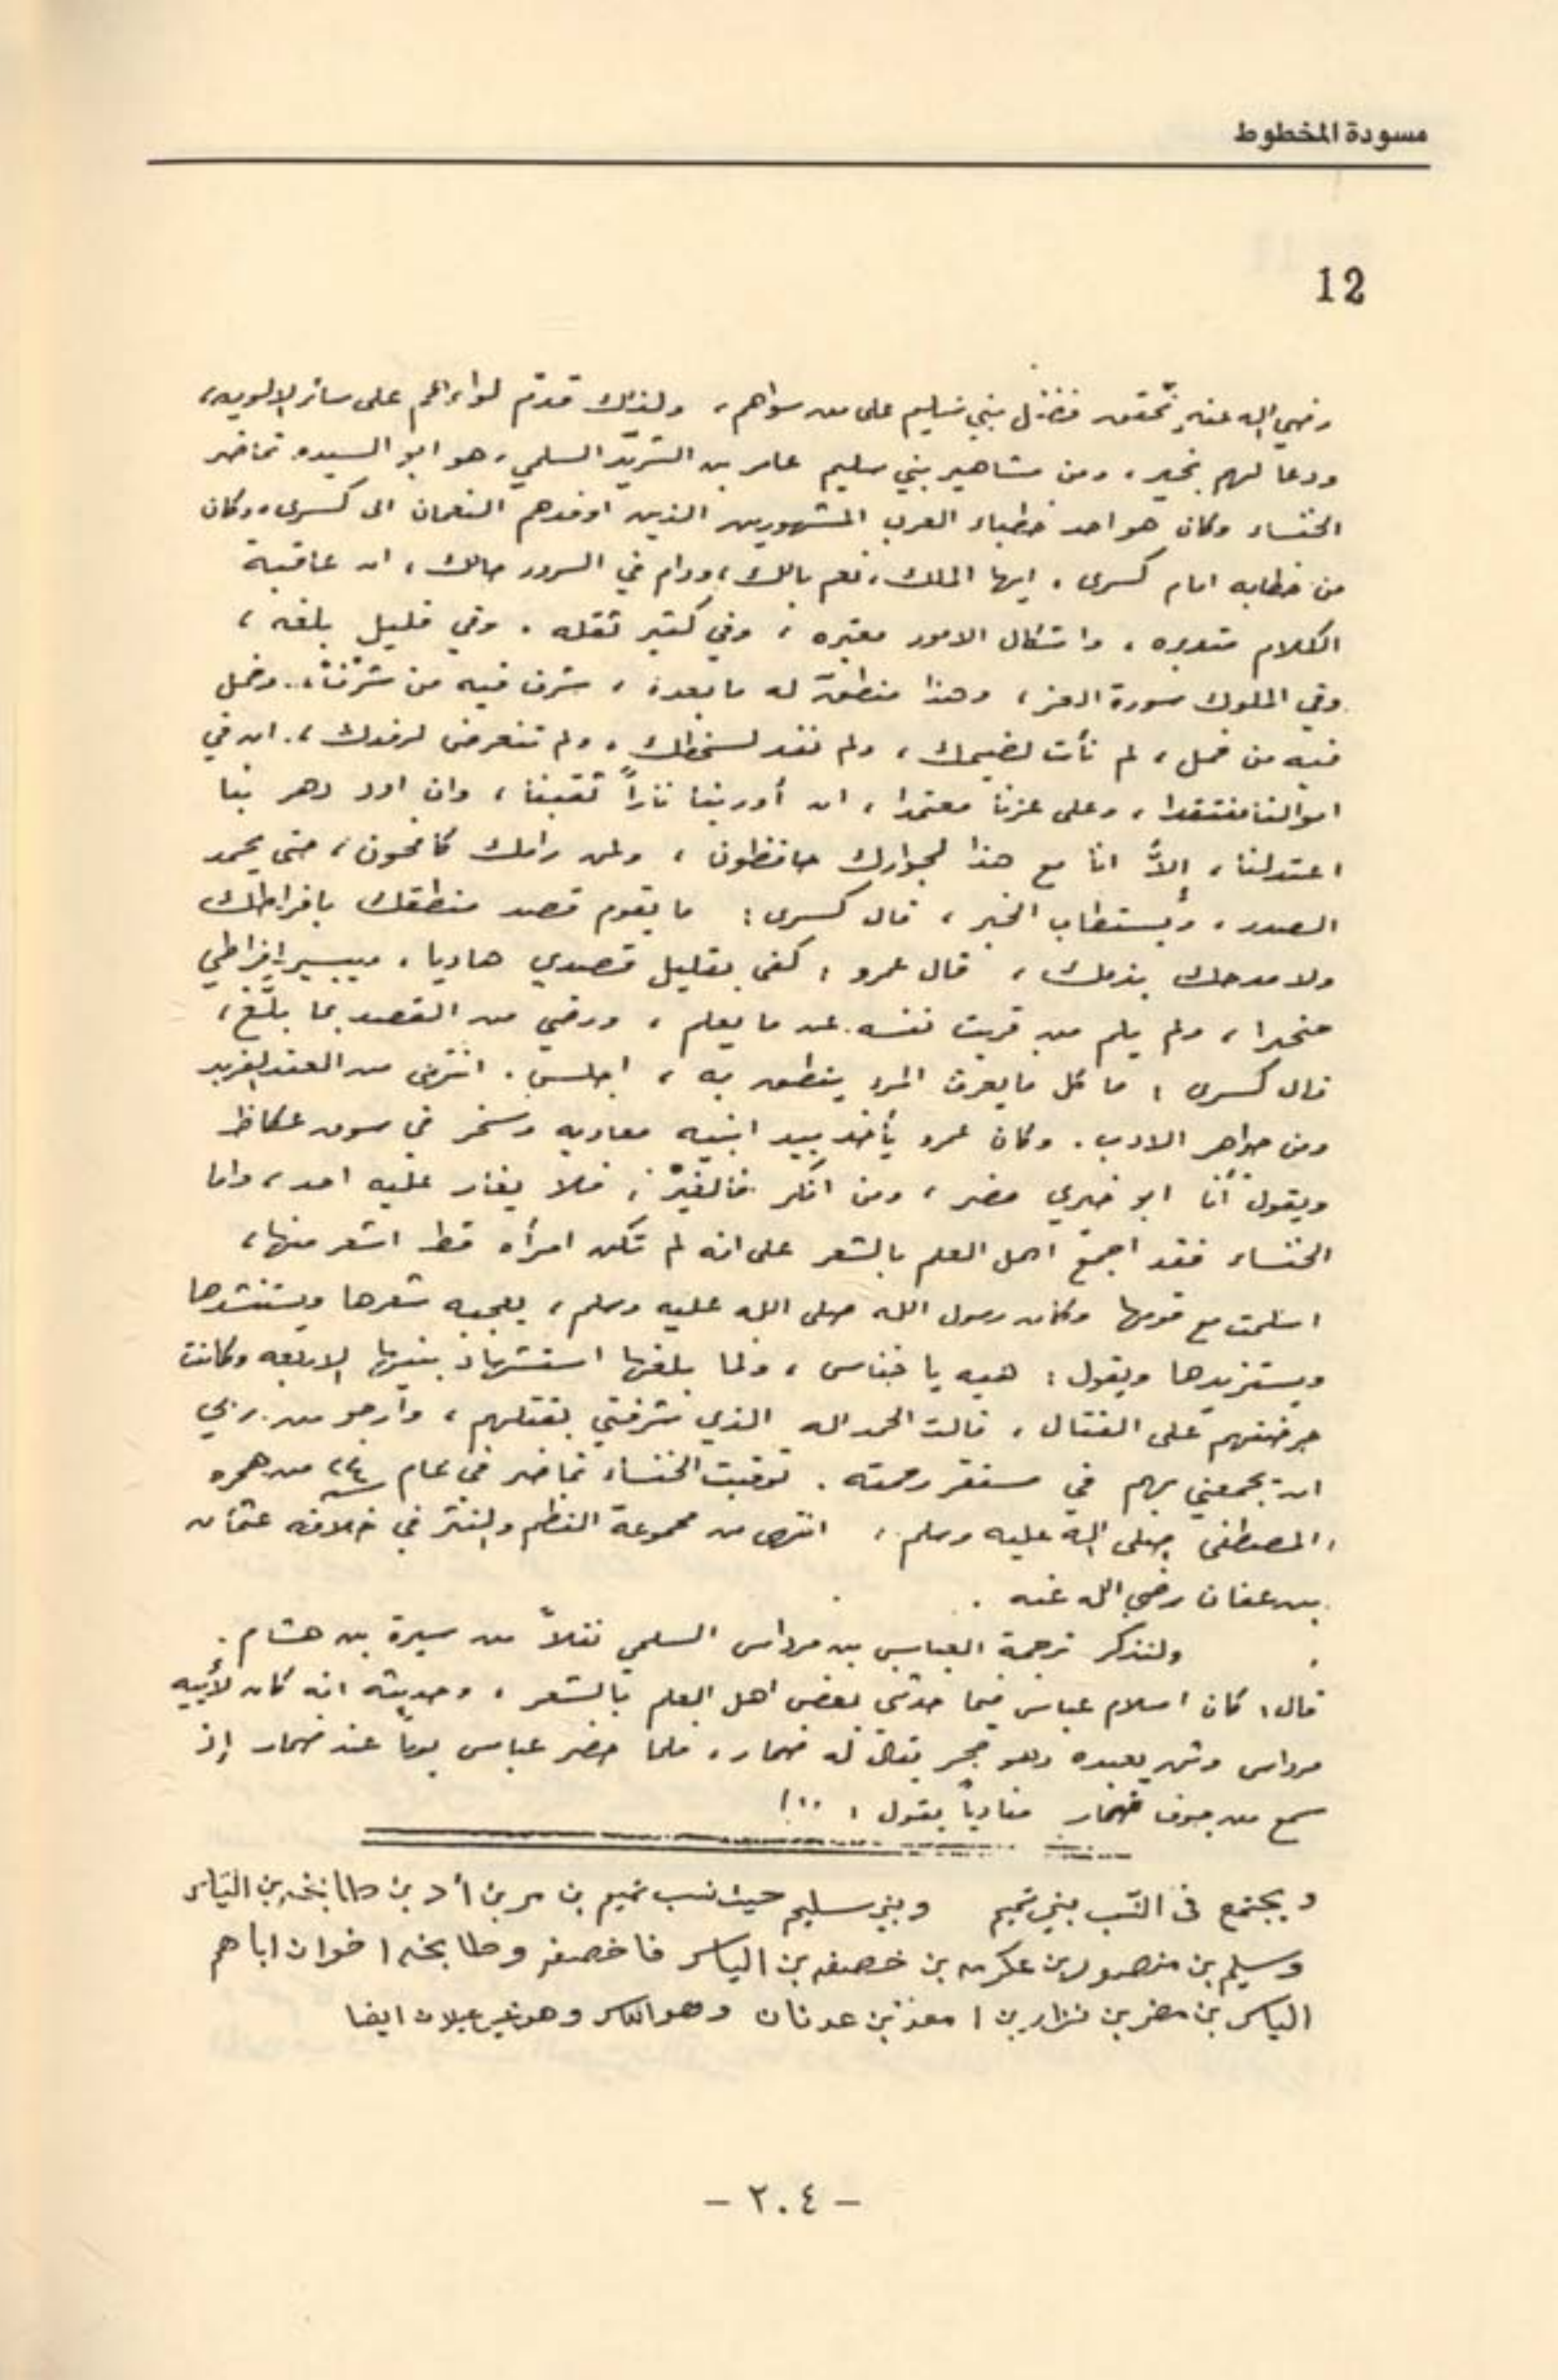 مسودة المخطوط
12
رضي الله عنه وتحقق فضل بني سليم على من سواهم، ولذلك قدم لواءهم على سائر الالويه،
ودعا لهم بخير، ومن مشاهير بني سليم عامر بن الشريد السلمي، هو ابو السيده تماضر
الخنساء وكان هو احد خطباء العرب المشهورين الذين اوفدهم النعمان الى كسرى، وكان
من خطابه امام كسرى، ايها الملك، نعم بالك، ودام في السرور حالك، ان عاقبة
الكلام متدبره، واشكال الامور معتبره، وفي كثير ثقله، وفي قليل بلغه،
وفي الملوك سورة العز، وهذا منطق له ما بعده، شرف فيه من شرف، وخمل
فيه من خمل، لم نأت لضيمك، ولم نفد لسخطك، ولم نتعرض لرفدك، ان في
اموالنا منتقدا، وعلى عزنا معتمدا، ان أورينا ناراً ثقبنا، وان اود دهر بنا
اعتدلنا، إلاّ انا مع هذا لجوارك حافظون، ولمن رامك كافحون، حتى يحمد
الصدر، ويستطاب الخبر، قال كسرى: ما يقوم قصد منطقك بافراطك
ولا مدحك بذمك، قال عمرو: كفى بقليل قصدي هاديا، وبيسير افراطي
مخبرا، ولم يلم من غربت نفسه عن ما يعلم، ورضي من القصد بما بلغ،
قال كسرى: ما كل ما يعرف المرء ينطق به، اجلس. انتهى من العقد الفريد
ومن جواهر الادب. وكان عمرو يأخذ بيد ابنيه معاويه وصخر في سوق عكاظ
ويقول أنا ابو خيري مضر، ومن انكر فاليغير، فلا يغار عليه احد، واما
الخنساء فقد اجمع اهل العلم بالشعر على انه لم تكن امرأه قط اشعر منها،
اسلمت مع قومها وكان رسول الله صلى الله عليه وسلم، يعجبه شعرها ويستنشدها
ويستزيدها ويقول: هيه يا خناس، ولما بلغها استشهاد بنيها الاربعه وكانت
حرضتهم على القتال، قالت الحمد لله الذي شرفني بقتلهم، وأرجو من ربي
ان يجمعني بهم في مستقر رحمته. توفيت الخنساء تماضر في عام ٢٤ من هجره
المصطفى صلى الله عليه وسلم، انتهى من مجموعة النظم والنثر في خلافه عثمان
بن عفان رضي الله عنه.
ولنذكر ترجمة العباس بن مرداس السلمي نقلاً من سيرة بن هشام.
قال: كان اسلام عباس فيما حدثني بعض اهل العلم بالشعر، وحديثه انه كان لأبيه
مرداس وثن يعبده وهو حجر يقال له ضمار، فلما حضر عباس يوماً عند ضمار إذ
سمع من جوف ضمار منادياً يقول: ..!
ويجتمع في النسب بني تميم وبني سليم حيث نسب تميم بن مر بن أد بن طابخه بن الياس
وسليم بن منصور بن عكرمه بن خصفه بن الياس فاخصفه وطابخه اخوان اباهم
الياس بن مضر بن نزار بن معد بن عدنان وهو الياس وهو عيلان ايضا
- ٢٠٤ -